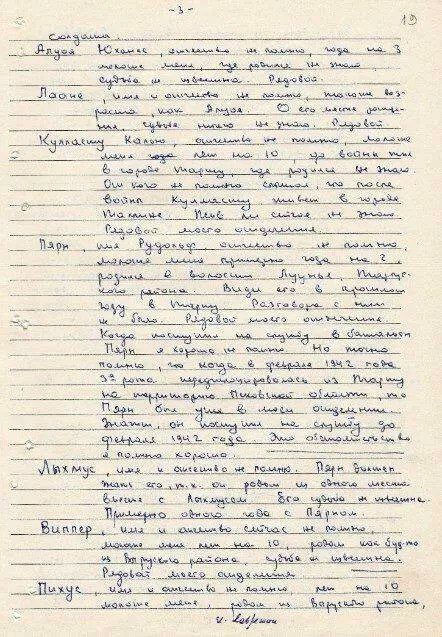 - 3 -
19
солдата.
Алуоя Юханес, отчество не помню, года на 3
моложе меня, где родился не знаю
судьба не известна. Рядовой.
Лаане, имя и отчество не помню, такого воз-
раста, как Алуоя. О его месте рожде-
ния, судьбе ничего не знаю. Рядовой
Куллясту Кальо, отчество не помню, моложе
меня года лет на 10, до войны жил
в городе Тарту, где родился не знаю
От кого не помню слышал, что после
войны Куллясту живет в городе
Таллине. Жив ли сейчас не знаю
Рядовой моего отделения.
Пярн, имя Рудольф отчество не помню,
моложе меня примерно года на 2,
родился в волости Луунья, Тарту-
ского района. Видел его в прошлом
году в Тарту Разговора с ним
не было. Рядовой моего отделения
Когда поступил на службу в батальон
Пярн я хорошо не помню. Но точно
помню, что когда в феврале 1942 года
33 рота передислоцировалась из Тарту
на территорию Псковской области, то
Пярн был уже в моем отделении.
Значит, он поступил на службу до
февраля 1942 года. Это обстоятельство
я помню хорошо.
Лыхмус, имя и отчество не помню. Пярн должен
знать его, т.к. он родом из одного места
вместе с Лыхмусом Его судьба не известна.
Примерно одного года с Пярном.
Виппер, имя и отчество сейчас не помню
моложе меня лет на 10, родом как будто
из Выруского района, судьба не известна.
Рядовой моего отделения.
Пихус, имя и отчество не помню лет на 10
моложе меня, родом из Выруского района,